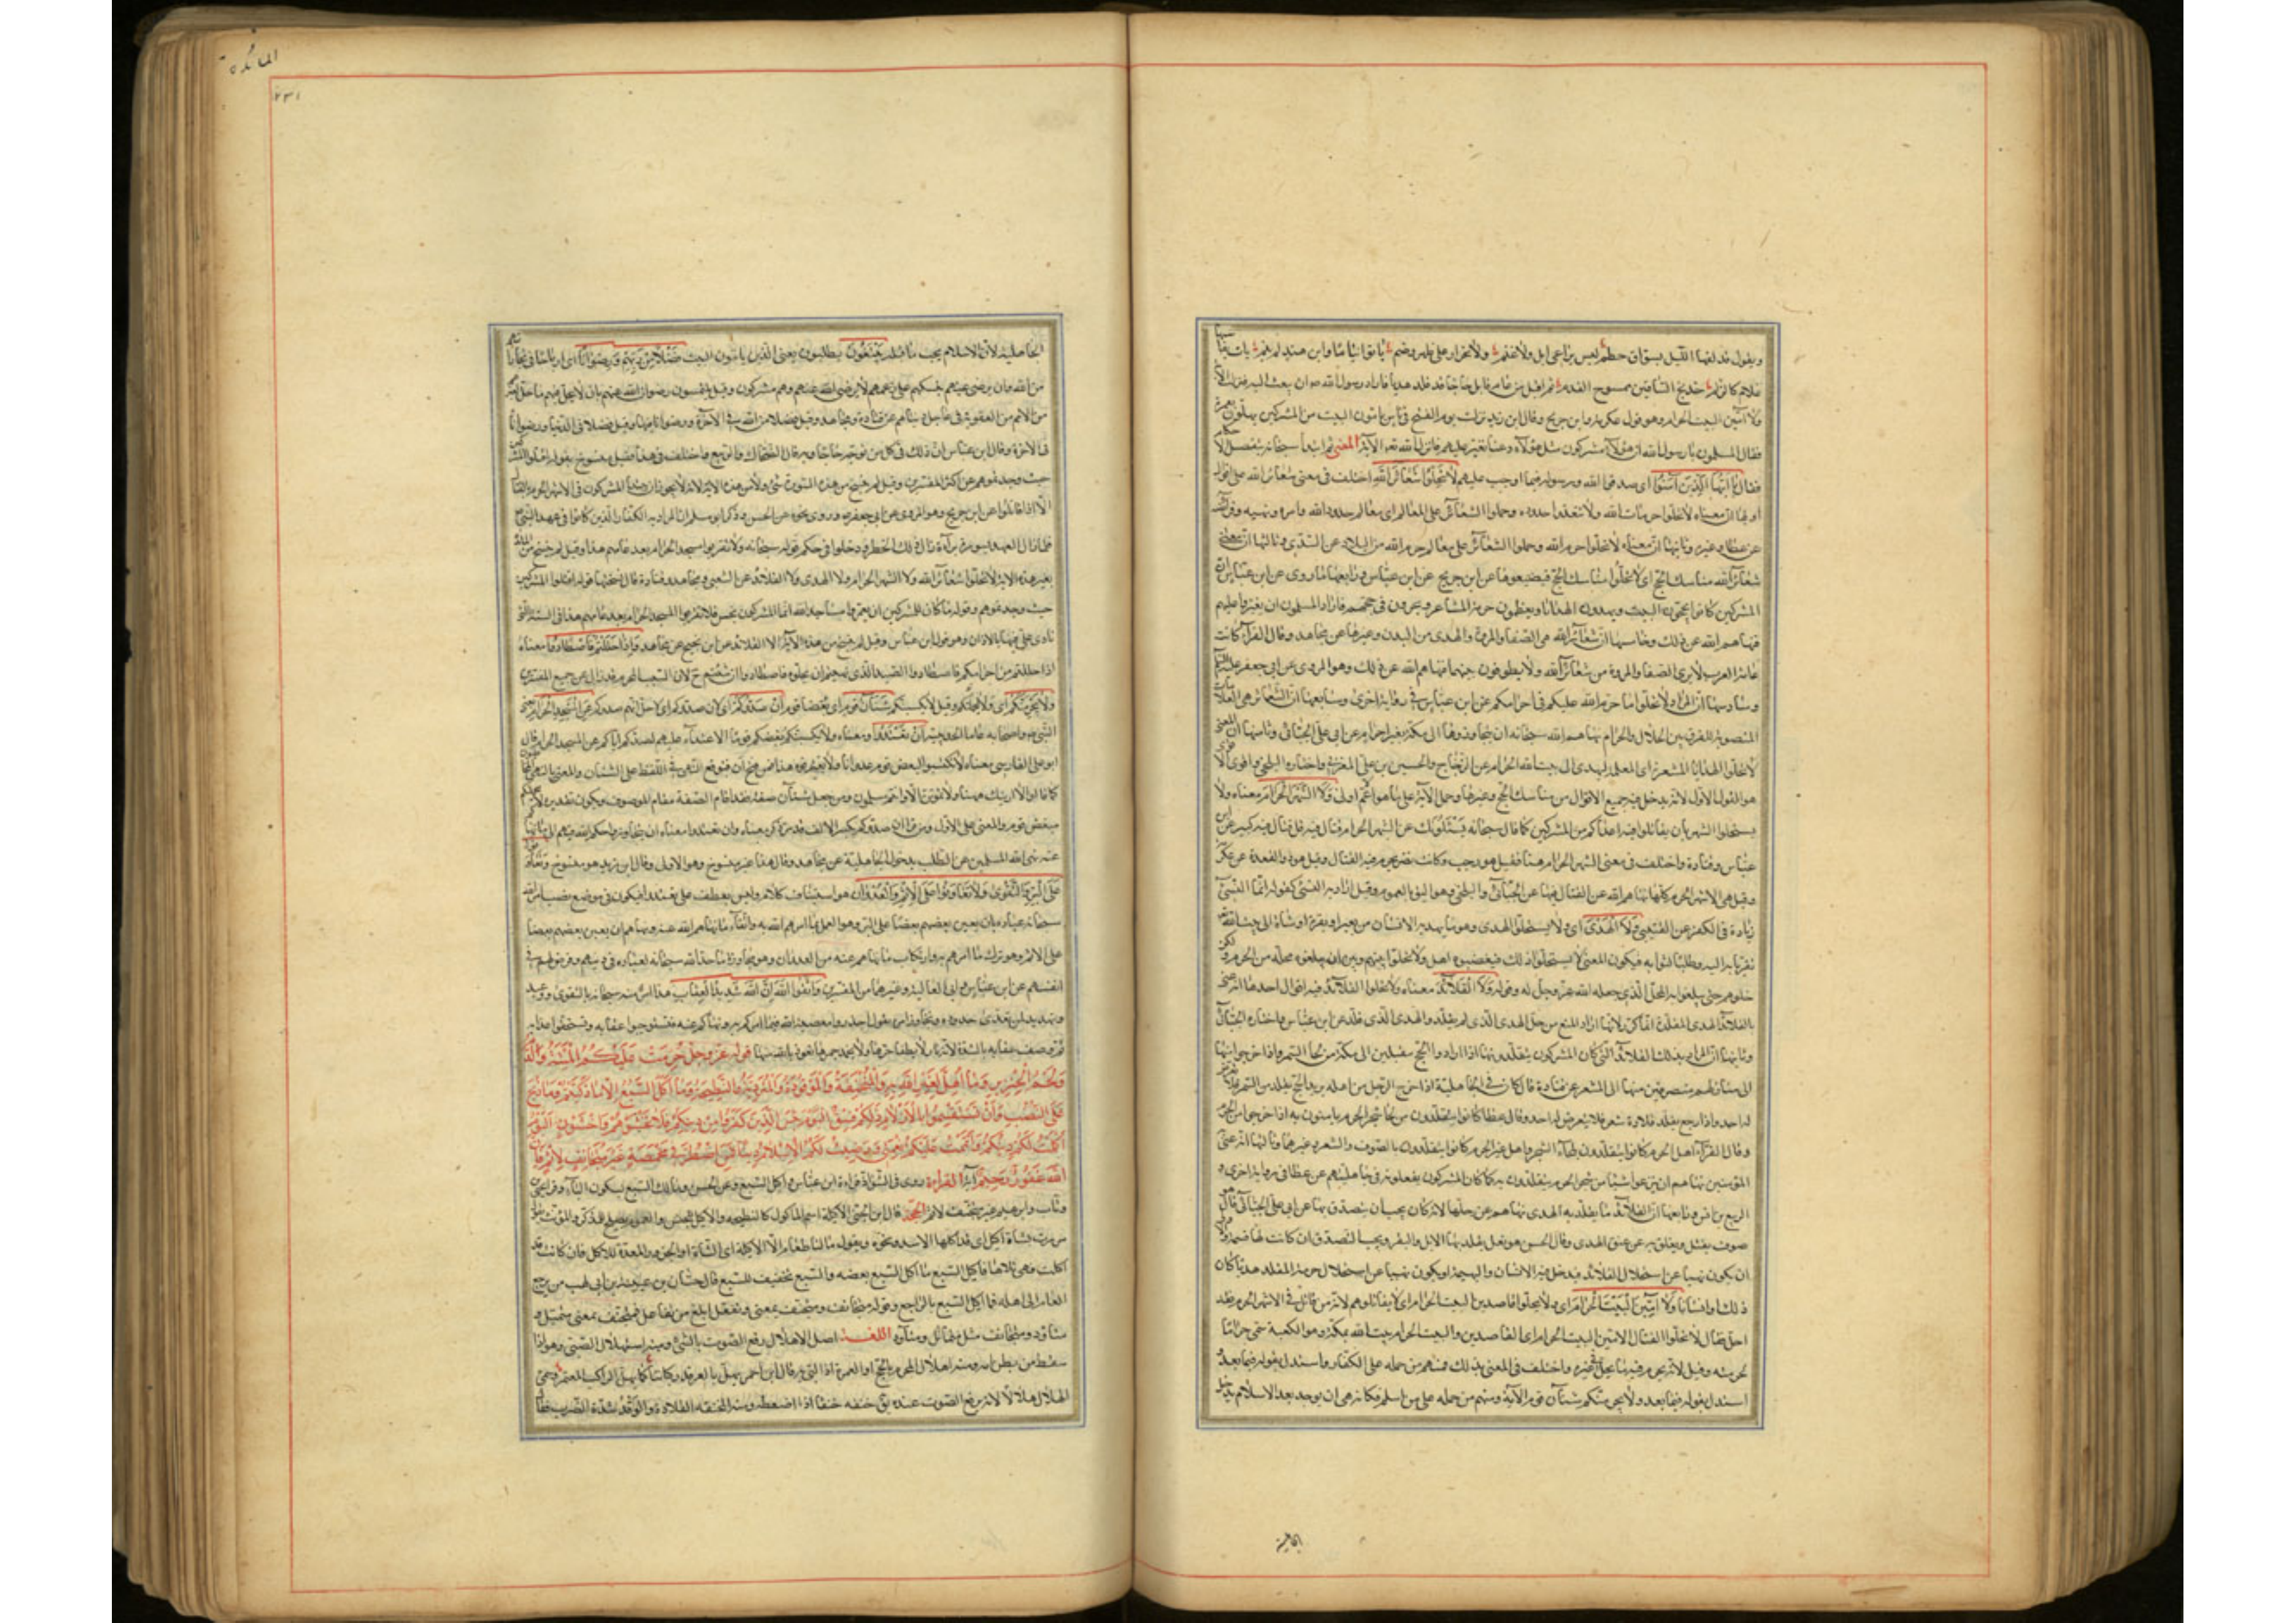 ويقول قد لفها الليل بسواق حطم ليس براعي ابل ولا غنم ولا بجزار على ظهر وضم باتوا نياما وابن هند لم ينم بات يقاسيها
غلام كالزلم خدلج الساقين ممسوح القدم ثم اقبل من عام قابل حاجا قد قلد هديا فاراد رسول الله ص ان يبعث اليه فنزلت الآية
ولا آمين البيت الحرام وهو قول عكرمة وابن جريج وقال ابن زيد نزلت يوم الفتح في ناس يأمون البيت من المشركين يهلون بعمرة
فقال المسلمون يا رسول الله ان هؤلاء مشركون مثل هؤلاء دعنا نغير عليهم فانزل الله تعم الآية المعنى ثم ابتدأ سبحانه بتفصيل الاحكام
فقال يا ايها الذين آمنوا اى صدقوا الله ورسوله فيما اوجب عليهم لا تحلوا شعائر الله اختلف في معنى شعائر الله على اقوال
اولها ان معناه لا تحلوا حرمات الله ولا تتعدوا حدوده وحملوا الشعائر على المعالم اى معالم حدود الله وامره ونهيه وفرائضه
عن عطا وغيره وثانيها ان معناه لا تحلوا حرم الله وحملوا الشعائر على معالم حرم الله من البلاد عن السدي وثالثها ان معنى
شعائر الله مناسك الحج اى لا تحلوا مناسك الحج فتضيعوها عن ابن جريج عن ابن عباس ورابعها ما روى عن ابن عباس ان
المشركين كانوا يحجون البيت ويهدون الهدايا ويعظمون حرمة المشاعر وينحرون في حجهم فاراد المسلمون ان يغيروا عليهم
فنهاهم الله عن ذلك وخامسها ان شعائر الله هى الصفا والمروة والهدى من البدن وغيرها عن مجاهد وقال الفراء كانت
عامة العرب لا يرى الصفا والمروة من شعائر الله ولا يطوفون بينهما فنهاهم الله عن ذلك وهو المروى عن ابي جعفر عليه السلم
وسادسها ان المراد لا تحلوا ما حرم الله عليكم في احرامكم عن ابن عباس في رواية اخرى وسابعها ان الشعائر هى العلامات
المنصوبة للفرق بين الحلال والحرام نهاهم الله سبحانه ان يتجاوزوها الى مكة بغير احرام عن ابي على الجبائي وثامنها ان المعنى
لا تحلوا الهدايا المشعرة اى المعلمة ليهدى الى بيت الله الحرام عن الزجاج والحسين بن على المغربى واختاره البلخى واقوى الاقوال
هو القول الاول لانه يدخل فيه جميع الاقوال من مناسك الحج وغيرها وحمل الآية على ما هو اعم اولى ولا الشهر الحرام معناه ولا
يستحلوا الشهر بان يقاتلوا فيه اعداكم من المشركين كما قال سبحانه يسئلونك عن الشهر الحرام قتال فيه قل قتال فيه كبير عن ابن
عباس وقتادة واختلف في معنى الشهر الحرام هنا فقيل هو رجب وكانت مضر تحرم فيه القتال وقيل هو ذو القعدة عن عكرمة
وقيل هى الاشهر الحرم كلها نهاهم الله عن القتال فيها عن الجبائي والبلخى وهو اليق بالعموم وقيل اراد به النسئ كقوله انما النسئ
زيادة في الكفر عن القتيبي ولا الهدى اى ولا يستحلوا الهدى وهو ما يهديه الانسان من بعير او بقرة او شاة الى بيت الله
تقربا به اليه وطلبا لثوابه فيكون المعنى لا يستحلوا ذلك فيغصبوه اهله ولا تحلوا بينهم وبين ان يبلغوه محله من الحرم ولكن
خلوهم حتى يبلغوا به المحل الذي جعله الله عز وجل له وقوله ولا القلائد معناه ولا تحلوا القلائد فيه اقوال احدها انه عنى
بالقلائد الهدى المقلدة انما كرر لانه اراد المنع من حل الهدى الذى لم يقلد والهدى الذى قلد عن ابن عباس واختاره الجبائي
وثانيها ان المراد بذلك القلائد التي كان المشركون يتقلدونها اذا ارادوا الحج مقبلين الى مكة من لحا السمر واذا خرجوا منها
الى منازلهم منصرفين منها الى المشعر عن قتادة قال كان في الجاهلية اذا خرج الرجل من اهله يريد الحج تقلد من السمر فلا يعرض
له احد واذا رجع تقلد قلادة شعر فلا يتعرض له احد وقال عطا كانوا يتقلدون من لحا شجر الحرم يامنون به اذا خرجوا من الحرم
وقال الفراء اهل الحرم كانوا يتقلدون بلحاء الشجر واهل غير الحرم كانوا يتقلدون بالصوف والشعر وغيرهما وثالثها انه عنى
المؤمنين نهاهم ان ينزعوا شيئا من شجر الحرم يتقلدون به كما كان المشركون يفعلونه في جاهليتهم عن عطا في رواية اخرى و
الربيع بن انس ورابعها ان القلائد ما يقلد به الهدى نهاهم عن حلها لانه كان يجب ان يتصدق بها عن ابي على الجبائي قال هو
صوف يفتل ويعلق به عن عنق الهدى وقال الحسن هو نعل يقلد بها الابل والبقر ويجب التصدق بها ان كانت لها قيمة والاولى
ان يكون نهيا عن استحلال القلائد فيدخل فيه الانسان والبهيمة او يكون نهيا عن استحلال حرمة المقلد هديا كان
ذلك او انسانا ولا آمين البيت الحرام اى ولا تحلوا قاصدين البيت الحرام اى لا يقاتلوهم لانه من قاتل في الاشهر الحرم فقد
احل فقال لا تحلوا القتال الامين البيت الحرام اى القاصدين والبيت الحرام بيت الله بمكة وهو الكعبة سمى حراما
لحرمته وقيل لانه يحرم فيه ما يحل في غيره واختلف في المعنى بذلك فمنهم من حمله على الكفار واستدل بقوله فيما بعد
استدل بقوله فيما بعد ولا يجرمنكم شنآن قوم الآية ومنهم من حمله على من اسلم فكانه نهى ان يوخذ بعد الاسلام بذحل
الجاهلية
المائدة
٢٣١
الجاهلية لان الاسلام يجب ما قبله يبتغون يطلبون يعنى الذين يامون البيت فضلا من ربهم ورضوانا اى ارباحا في تجاراتهم
من الله وان يرضى عنهم بنسكهم على زعمهم لا يرضى الله عنهم وهم مشركون وقيل يلتمسون رضوان الله عنهم بان لا يحل بهم ما حل بغيرهم
من الامم من العقوبة في عاجل دنياهم عن قتادة ومجاهد وقيل فضلا من الله في الآخرة ورضوانا منه فيها وقيل فضلا في الدنيا ورضوانا
في الآخرة وقال ابن عباس ان ذلك في كل من توجه حاجا وبه قال الضحاك والربيع واختلف في هذا فقيل منسوخ بقوله اقتلوا المشركين
حيث وجدتموهم عن اكثر المفسرين وقيل لم ينسخ من هذه السورة شئ ولا من هذه الآية لانه لا يجوز ان يبتدأ المشركون في الاشهر الحرم بالقتال
الا اذا قاتلوا عن ابن جريج وهو المروى عن ابي جعفر ع وروى نحوه عن الحسن وذكر ابو مسلم ان المراد به الكفار الذين كانوا في عهد النبي ص
فلما زال العهد بسورة برآءة زال ذلك الحظر ودخلوا في حكم قوله سبحانه ولا تقربوا المسجد الحرام بعد عامهم هذا وقيل لم ينسخ من المائدة
غير هذه الآية لا تحلوا شعائر الله ولا الشهر الحرام ولا الهدى ولا القلائد عن الشعبى ومجاهد وقتادة قال نسخها قوله اقتلوا المشركين
حيث وجدتموهم وقوله ما كان للمشركين ان يعمروا مساجد الله انما المشركون نجس فلا تقربوا المسجد الحرام بعد عامهم هذا في السنة التي
نادى على فيها بالاذان وهو قول ابن عباس وقيل لم ينسخ من هذه الآية الا القلائد عن ابن نجيح عن مجاهد واذا حللتم فاصطادوا معناه
اذا حللتم من احرامكم فاصطادوا الصيد الذى نهيتم ان تحلوه فاصطادوا ان شئتم ح لان السبب المحرم قد زال عن جميع المفسرين
ولا يجرمنكم اى ولا يحملنكم وقيل لا يكسبنكم شنآن قوم اى بغضا قوم ان صدوكم اى لان صدوكم اى لاجل انهم صدوكم عن المسجد الحرام يعنى
النبي ص واصحابه عام الحديبية ان تعتدوا ومعناه ولا يكسبنكم بغضكم قوما الاعتداء عليهم لصدهم اياكم عن المسجد الحرام قال
ابو على الفارسى معناه لا تكتسبوا لبعض قوم عدوانا ولا تقترفوه هذا فيمن فتح ان فوقع النهى في اللفظ على الشنان والمعنى النهى للمخاطبين
كما قالوا لا ارينك ههنا ولا تموتن الا وانتم مسلمون ومن جعل شنآن صفة فقد اقام الصفة مقام الموصوف ويكون تقديره لا يجرمنكم
مبغض قوم والمعنى على الاول ومن قرأ ان صدوكم بكسر الالف فقد مر ذكر معناه وان تعتدوا معناه ان يتجاوزوا حكم الله فيهم الى ما نهاكم
عنه نهى الله المسلمين عن الطلب بدحول الجاهلية عن مجاهد وقال هذا غير منسوخ وهو الاولى وقال ابن زيد هو منسوخ وتعاونوا
على البر والتقوى ولا تعاونوا على الاثم والعدوان هو استيناف كلام وليس بعطف على تعتدوا فيكون في موضع نصب امر الله
سبحانه عباده بان يعين بعضهم بعضا على البر وهو العمل بما امرهم الله به واتقاء ما نهاهم الله عنه ونهاهم ان يعين بعضهم بعضا
على الاثم وهو ترك ما امرهم به وارتكاب ما نهاهم عنه من العدوان وهو مجاوزة ما حد الله سبحانه لعباده في دينهم وفرض لهم في
انفسهم عن ابن عباس وابي العالية وغيرهما من المفسرين واتقوا الله ان الله شديد العقاب هذا امر منه سبحانه بالتقوى ووعيد
وتهديد لمن تعدى حدوده وتجاوز امره يقول احذروا معصية الله فيما امركم به ونهاكم عنه فتستوجبوا عقابه وتستحقوا عذابه
ثم وصف عقابه بالشدة لانه نار لا يطفا حرها ولا يخمد جمرها نعوذ بالله منها قوله عز وجل حرمت عليكم الميتة والدم
ولحم الخنزير وما اهل لغير الله به والمنخنقة والموقوذة والمتردية والنطيحة وما اكل السبع الا ما ذكيتم وما ذبح
على النصب وان تستقسموا بالازلام ذلكم فسق اليوم يئس الذين كفروا من دينكم فلا تخشوهم واخشون اليوم
اكملت لكم دينكم واتممت عليكم نعمتى ورضيت لكم الاسلام دينا فمن اضطر في مخمصة غير متجانف لاثم فان
الله غفور رحيم آية القراءة روى في الشواذ قراءة ابن عباس واكيل السبع وعن الحسن وما اكل السبع بسكون الباء وقرا يحيى بن
وثاب وابرهيم غير متجنف لاثم الحجة قال ابن جنى الاكيلة اسم الماكول كالنطيحة والاكيل للجنس والعموم يصلح للمذكر والمؤنث يقول
مررت بشاة اكيل اى قد اكلها الاسد ونحوه ويقول ما لنا طعام الا الاكيلة اى الشاة او الجزور المعدة للاكل فان كانت قد
اكلت فهى بلا هاء فاكيل السبع ما اكل السبع بعضه والسبع تخفيف السبع قال حسان بن عتيبة بن ابي لهب من يرجع
العام الى اهله فما اكيل السبع بالراجع وقوله متجانف ومتجنف بمعنى وتفعل ابلغ من تفاعل فمتجنف بمعنى متميل و
متاود ومتجانف مثل متمائل ومتاود اللغة اصل الاهلال رفع الصوت بالشئ ومنه استهلال الصبى وهو اذا
سقط من بطن امه ومنه اهلال المحرم بالحج او العمرة اذا لبى به قال ابن احمر يهل بالفرقد ركبانها كما يهل الراكب المعتمر وسمى
الهلال هلالا لانه يرفع الصوت عنده يق خنقه خنقا اذا ضغطه ومنه المخنقة القلادة والوقذ شدة الضرب